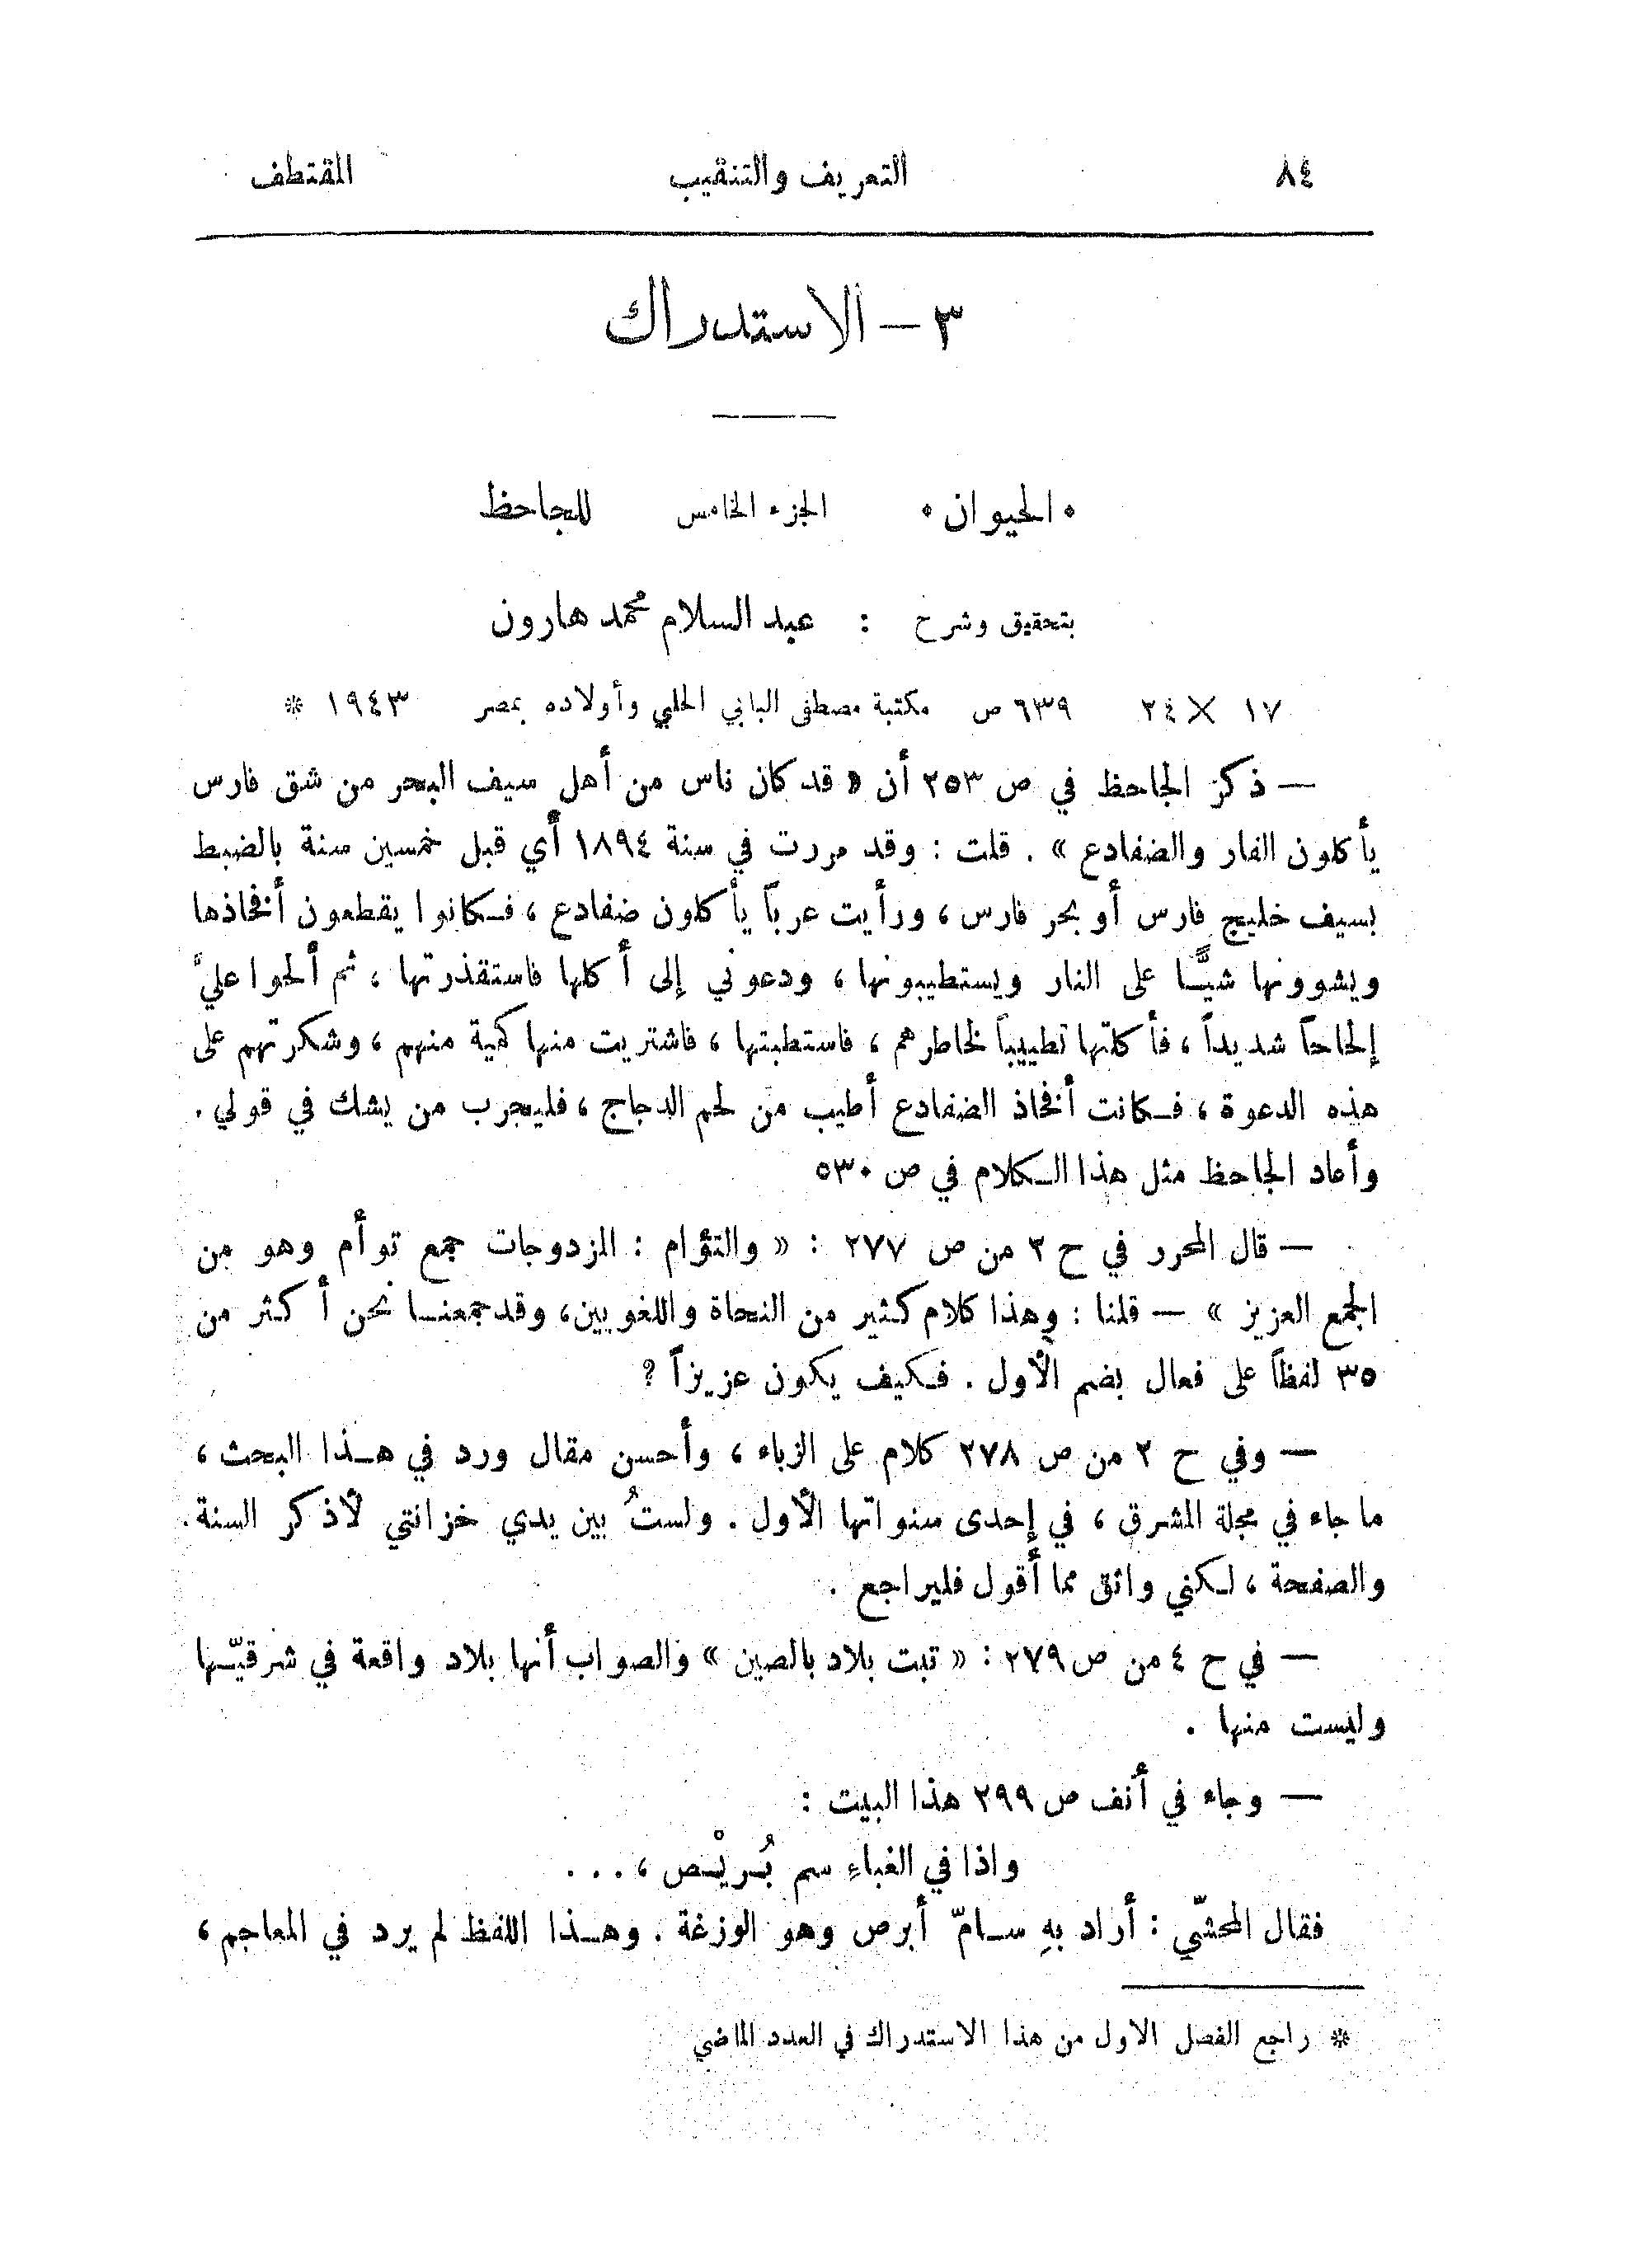 ٨٤ التعريف والتنقيب المقتطف
٣ — الاستدراك
• الحيوان • الجزء الخامس للجاحظ
بتحقيق وشرح : عبد السلام محمد هارون
١٧ × ٢٤ ٦٣٩ ص مكتبة مصطفى البابي الحلبي وأولاده بمصر ١٩٤٣ *
— ذكر الجاحظ في ص ٢٥٣ أن « قد كان ناس من أهل سيف البحر من شق فارس
يأكلون الفار والضفادع » . قلت : وقد مررت في سنة ١٨٩٤ أي قبل خمسين سنة بالضبط
بسيف خليج فارس أو بحر فارس ، ورأيت عرباً يأكلون ضفادع ، فكانوا يقطعون أفخاذها
ويشوونها شيًّا على النار ويستطيبونها ، ودعوني إلى أكلها فاستقذرتها ، ثم ألحوا عليَّ
إلحاحاً شديداً ، فأكلتها تطييباً لخاطرهم ، فاستطبتها ، فاشتريت منها كمية منهم ، وشكرتهم على
هذه الدعوة ، فكانت أفخاذ الضفادع أطيب من لحم الدجاج ، فليجرب من يشك في قولي .
وأعاد الجاحظ مثل هذا الكلام في ص ٥٣٠
— قال المحرر في ح ٣ من ص ٢٧٧ : « والتؤام : المزدوجات جمع توأم وهو من
الجمع العزيز » — قلنا : وهذا كلام كثير من النحاة واللغويين ، وقد جمعنا نحن أكثر من
٣٥ لفظاً على فعال بضم الأول . فكيف يكون عزيزاً ؟
— وفي ح ٢ من ص ٢٧٨ كلام على الزباء ، وأحسن مقال ورد في هذا البحث ،
ما جاء في مجلة المشرق ، في إحدى سنواتها الأول . ولستُ بين يدي خزانتي لأذكر السنة
والصفحة ، لكني واثق مما أقول فليراجع .
— في ح ٤ من ص ٢٧٩ : « تبت بلاد بالصين » والصواب أنها بلاد واقعة في شرقيّها
وليست منها .
— وجاء في أنف ص ٢٩٩ هذا البيت :
واذا في الغباءِ سم بُريْص ، . . .
فقال المحشّي : أراد بهِ سامّ أبرص وهو الوزغة . وهذا اللفظ لم يرد في المعاجم ،
* راجع الفصل الاول من هذا الاستدراك في العدد الماضي